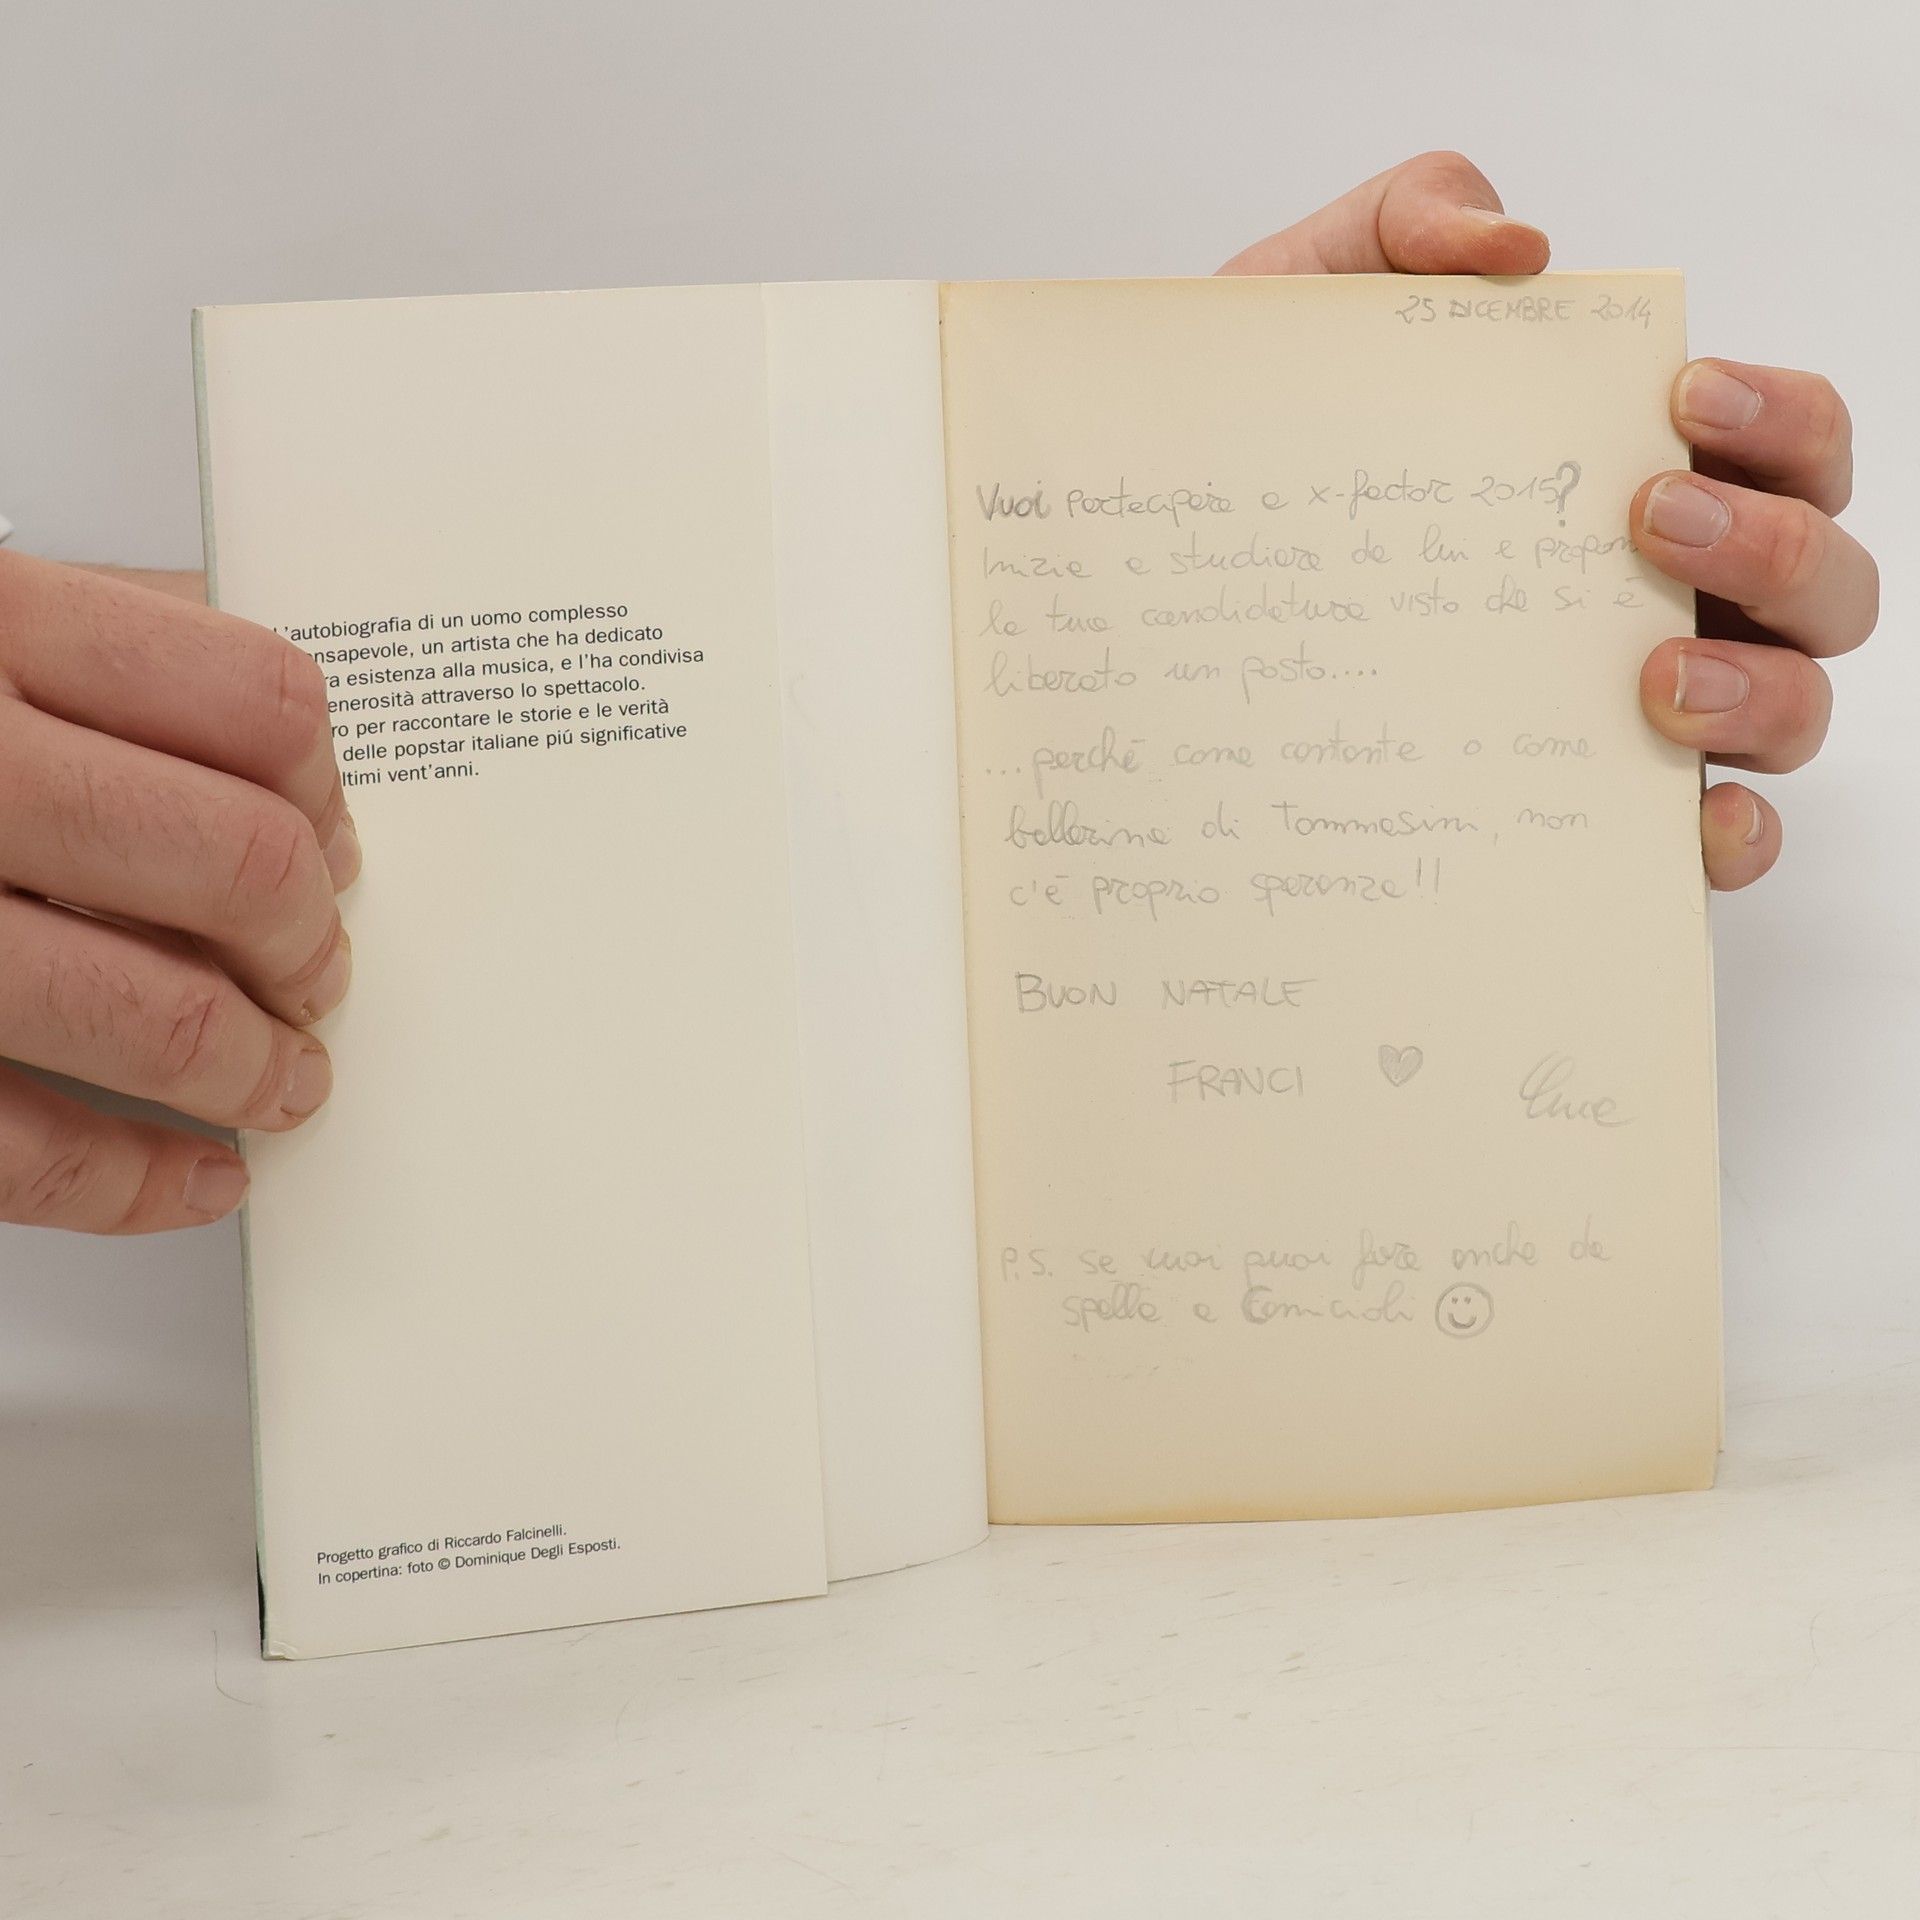 L'autobiografia di un uomo complesso
nsapevole, un artista che ha dedicato
ra esistenza alla musica, e l'ha condivisa
enerosità attraverso lo spettacolo.
ro per raccontare le storie e le verità
delle popstar italiane piú significative
ltimi vent'anni.
Progetto grafico di Riccardo Falcinelli.
In copertina: foto © Dominique Degli Esposti.
25 DICEMBRE 2014
Vuoi partecipare a x-factor 2015?
Inizia a studiare da lui e propon
la tua candidatura visto che si è
liberato un posto....
...perché come cantante o come
ballerina di Tommasini, non
c'è proprio speranza!!
BUON NATALE
FRANCI
P.S. se vuoi puoi fare anche da
spalla a Camicioli